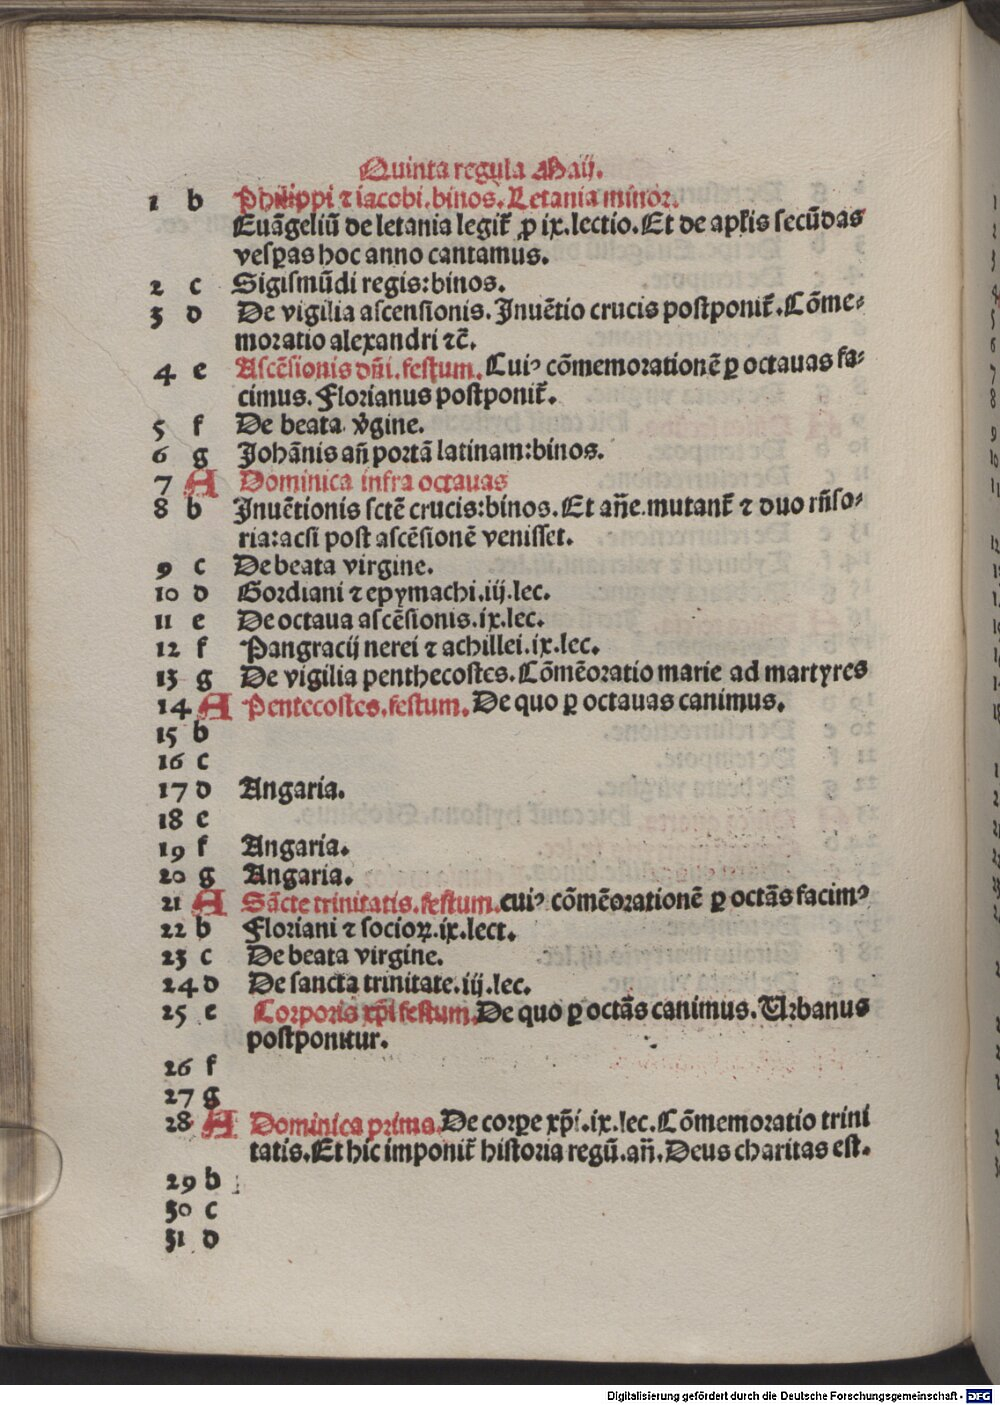 Quinta regula Maij.
1 b Philippi ⁊ iacobi.binos.Letania minor.
Euāgeliū de letania legit᷑ ꝓ ix.lectio.Et de apl̓is secūdas
vesꝑas hoc anno cantamus.
2 c Sigismūdi regis:binos.
3 d De vigilia ascensionis.Inuētio crucis postponit᷑.Cōme⸗
moratio alexandri ⁊c̄.
4 e Ascēsionis dn̄i.festum.Cuiꝰ cōmemorationē ꝑ octauas fa⸗
cimus.Florianus postponit᷑.
5 f De beata v̓gine.
6 g Johānis an̄ portā latinam:binos.
7 A Dominica infra octauas
8 b Inuētionis sctē crucis:binos.Et an̄e.mutant᷑ ⁊ duo rn̄so⸗
ria:acsi post ascēsionē venisset.
9 c De beata virgine.
10 d Gordiani ⁊ epymachi.iij.lec.
11 e De octaua ascēsionis.ix.lec.
12 f Pangracij nerei ⁊ achillei.ix.lec.
13 g De vigilia penthecostes.Cōmēoratio marie ad martyres
14 A Pentecostes.festum.De quo ꝑ octauas canimus.
15 b
16 c
17 d Angaria.
18 e
19 f Angaria.
20 g Angaria.
21 A Sācte trinitatis.festum.cuiꝰ cōmēorationē ꝑ octās facimꝰ
22 b Floriani ⁊ socioꝝ.ix.lect.
23 c De beata virgine.
24 d De sancta trinitate.iij.lec.
25 e Corporis xp̄i festum.De quo ꝑ octās canimus.Urbanus
postponitur.
26 f
27 g
28 A Dominica prima.De corꝑe xp̄i.ix.lec.Cōmemoratio trini
tatis.Et hic imponit᷑ historia regū.an̄.Deus charitas est.
29 b
30 c
31 d
Digitalisierung gefördert durch die Deutsche Forschungsgemeinschaft - DFG